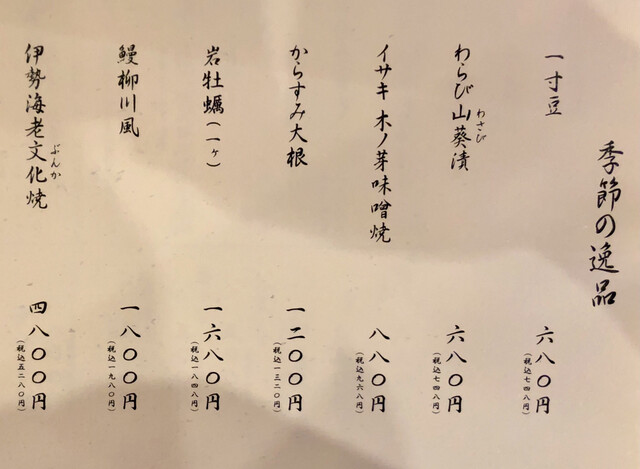 季節の逸品
一寸豆
六八〇円
(税込七四八円)
わらび山葵漬
わさび
六八〇円
(税込七四八円)
イサキ木ノ芽味噌焼
八八〇円
(税込九六八円)
からすみ大根
一二〇〇円
(税込一三二〇円)
岩牡蠣(一ヶ)
一六八〇円
(税込一八四八円)
鰻柳川風
一八〇〇円
(税込一九八〇円)
伊勢海老文化焼
ぶんか
四八〇〇円
(税込五二八〇円)